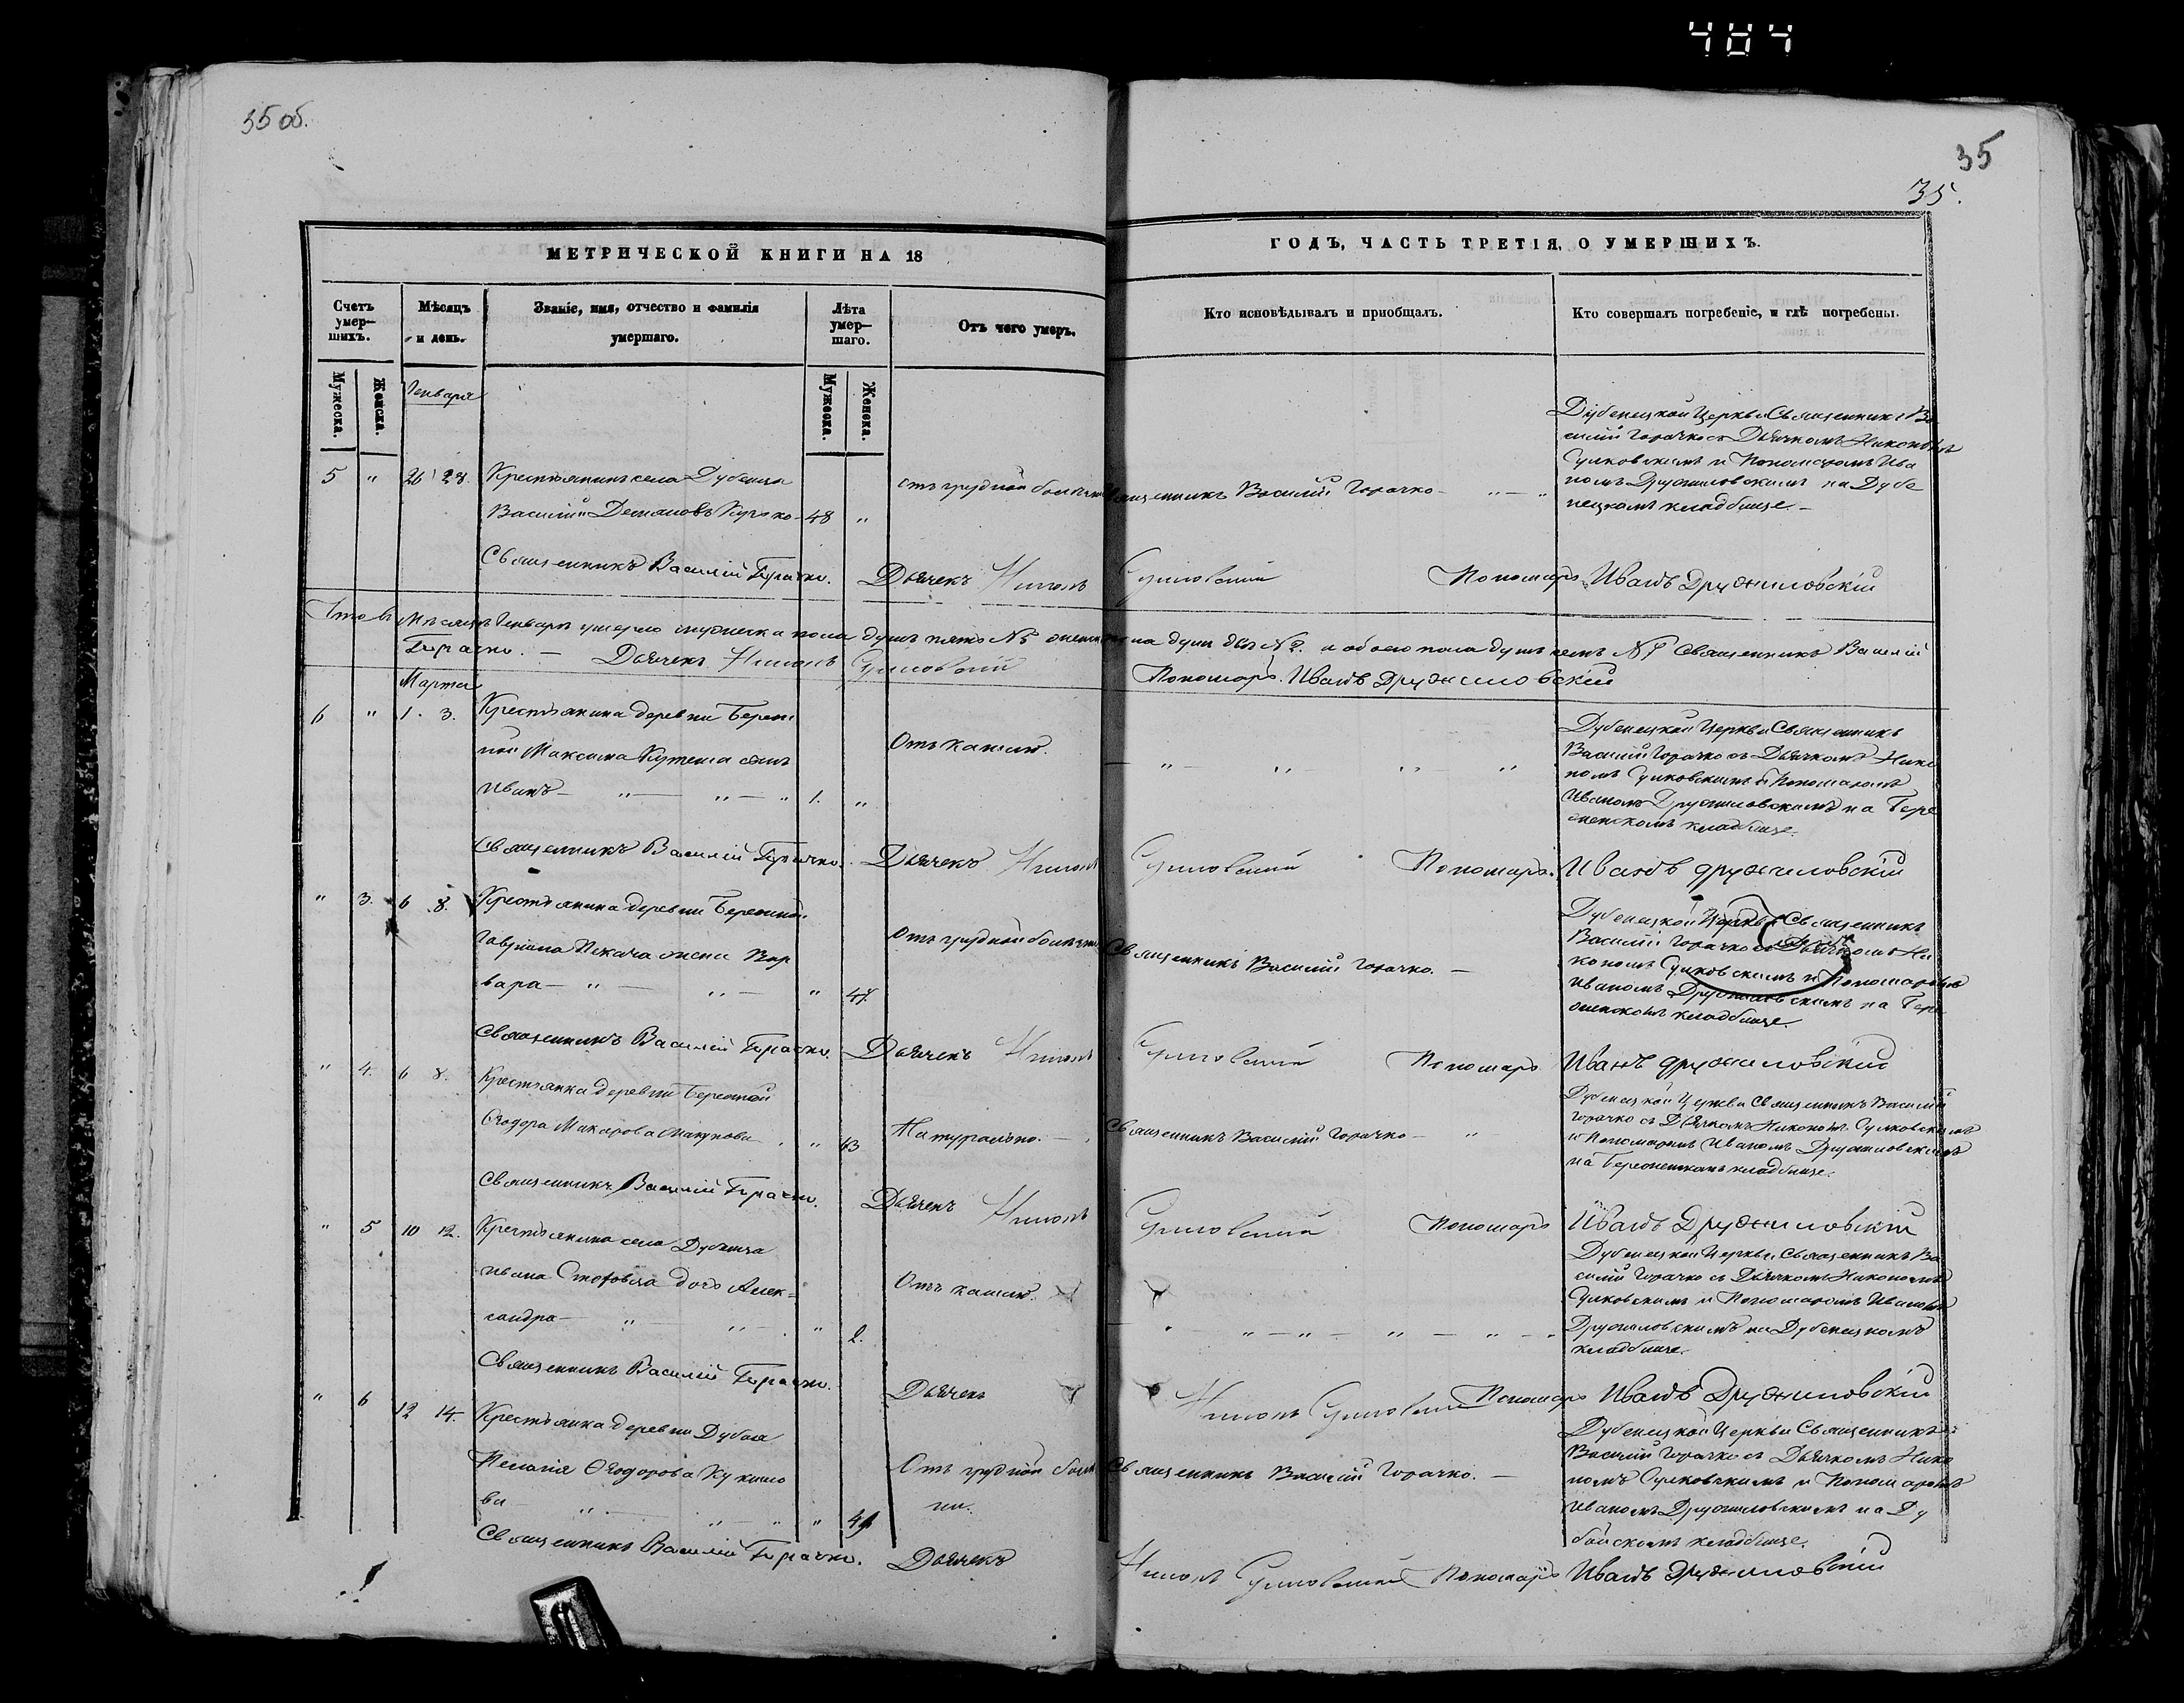 484
35 об.
35
35.
МЕТРИЧЕСКОЙ КНИГИ НА 18
ГОДЪ, ЧАСТЬ ТРЕТІЯ, О УМЕРШИХЪ.
Счетъ умер-шихъ.
Мѣсяцъ и день.
Званіе, имя, отчество и фамилія умершаго.
Лѣта умер-шаго.
Отъ чего умеръ.
Кто исповѣдывалъ и приобщалъ.
Кто совершалъ погребеніе, и гдѣ погребены.
Мужеска.
Женска.
Мужеска.
Женска.
Генваря
5 " 26 28. Крестьянинъ села Дубенца
Василій Демяновъ 48 "
отъ грудной
Священникъ Василій Горачко
Дубенецкой Церкви Священникъ Ва
силій Горачко съ Дьячкомъ Никономъ
и Пономаромъ Ива
номъ Дружиловскимъ на Дубе
нецкомъ кладбище.
Священникъ Василій Горачко. Дьячекъ Никонъ Пономарь Иванъ Дружиловскій
Мѣсяцѣ Генварѣ умерло мужеска пола душъ пять № женска пола душъ двѣ № и обоего пола душъ семь № Священникъ Василій
Горачко. — Дьячекъ Никонъ Пономарь Иванъ Дружиловскій
Марта
6 " 1. 3. Крестьянина деревни Береж
ной Максима сынъ
Иванъ — " — " — " 1. "
Отъ кашлю.
Дубенецкой Церкви Священникъ
Василій Горачко съ Дьячкомъ Нико
номъ и Пономаромъ
Иваномъ Дружиловскимъ на Бере
женскомъ кладбище.
Священникъ Василій Горачко. Дьячекъ Никонъ Пономарь. Иванъ дружиловскій
" 3. 6 8. Крестьянина деревни Бережной
Гавріила жена Вар
вара — " — " — " 47.
Отъ грудной
Священникъ Василій Горачко. —
Дубенецкой Церкви Священникъ
Василій Горачко съ Дьячкомъ Ни
кономъ и Пономаромъ
Иваномъ Дружиловскимъ на Бере
женскомъ кладбище.
Священникъ Василій Горачко. Дьячекъ Никонъ Пономарь Иванъ дружиловскій
" 4. 6 8. Крестьянка деревни Бережной
Ѳеодора Макарова " 63
Натурально. —
Священникъ Василій Горачко — "
Дубенецкой Церкви Священникъ Василій
Горачко съ Дьячкомъ Никономъ
и Пономаромъ Иваномъ Дружиловскимъ
на Береженскомъ кладбище.
Священникъ Василій Горачко. Дьячекъ Никонъ Пономарь Иванъ Дружиловскій
" 5 10 12. Крестьянина села Дубенца
Ивана дочь Алек=
сандра — " — " — " 2.
Отъ кашлю.
Дубенецкой Церкви Священникъ Ва
силій Горачко съ Дьячкомъ Никономъ
и Пономаромъ Иваномъ
Дружиловскимъ на Дубенецкомъ
кладбище.
Священникъ Василій Горачко. Дьячекъ Никонъ Пономарь Иванъ Дружиловскій
" 6 12 14. Крестьянка деревни Дубая
Пелагія Ѳеодорова
ва — " — " — " "
Отъ грудной болѣз
ни.
Священникъ Василій Горачко. —
Дубенецкой Церкви Священникъ
Василій Горачко съ Дьячкомъ Нико
номъ и Пономаромъ
Иваномъ Дружиловскимъ на Ду
байскомъ кладбище.
Священникъ Василій Горачко. Дьячекъ Никонъ Пономарь Иванъ Дружиловскій